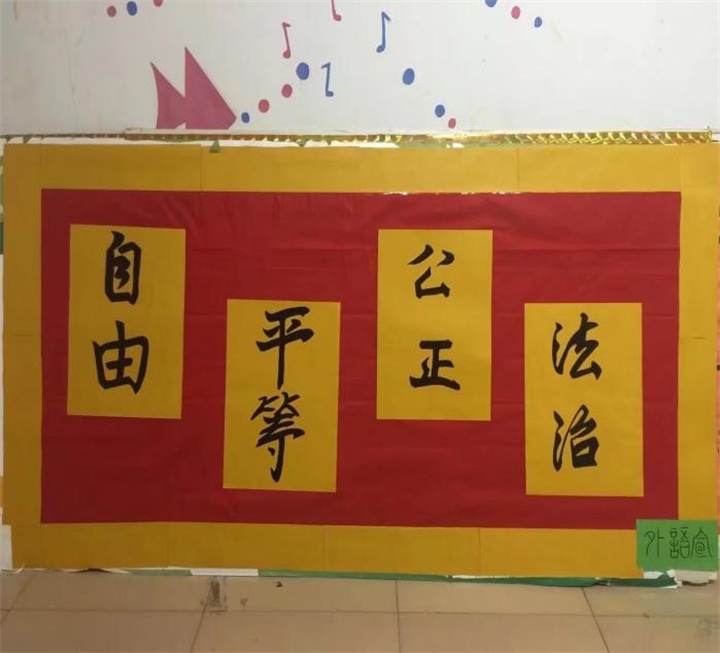 自由
平等
公正
法治
外語宣